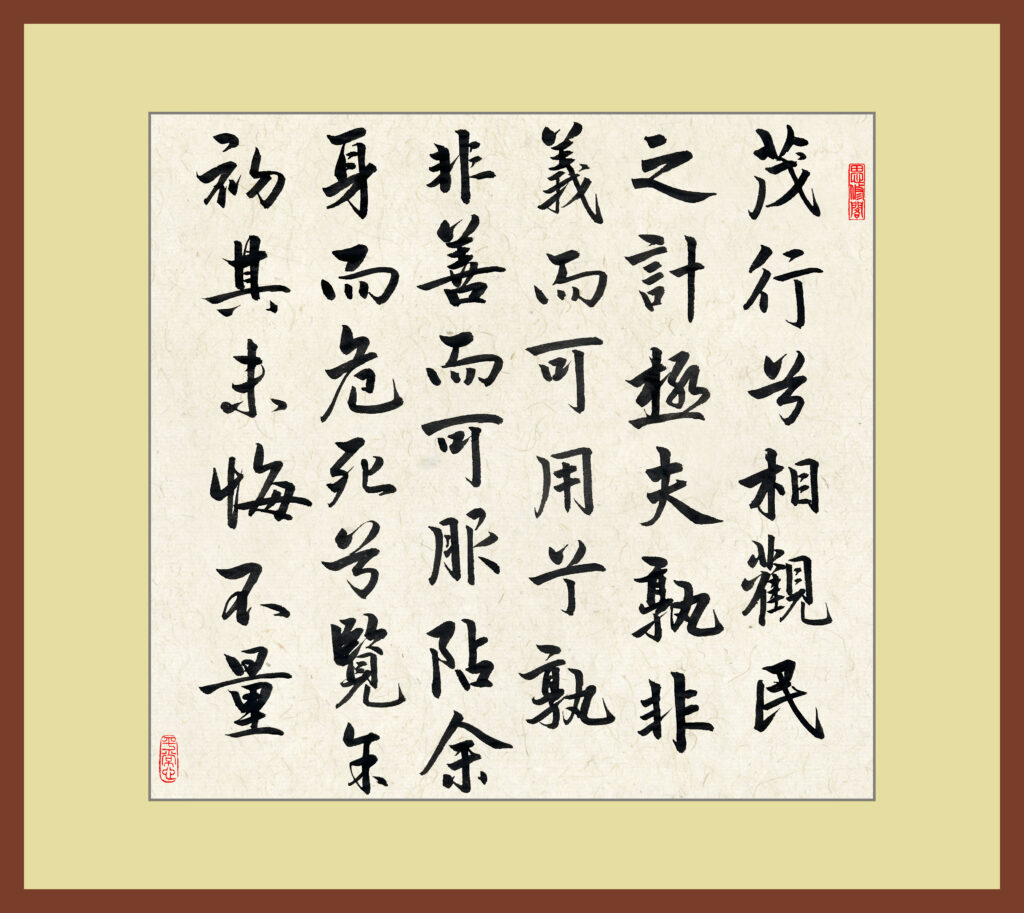 思修閣
茂行兮相觀民
之計極夫孰非
義而可用兮孰
非善而可服阽余
身而危死兮覽余
初其未悔不量
平常心